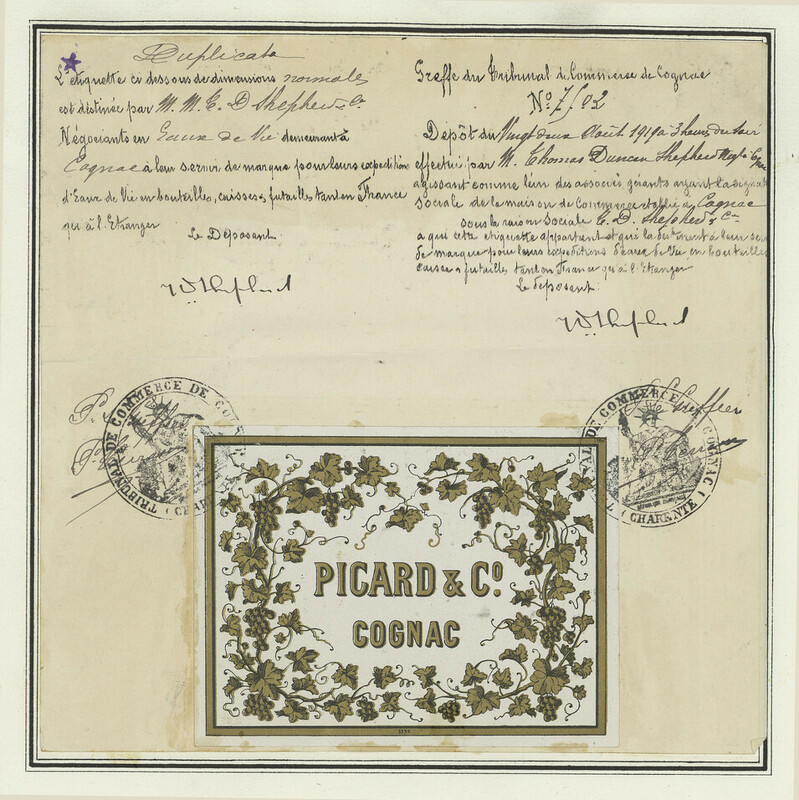 Duplicata
L'etiquette ci dessous de dimensions normales
est destinée par M. M. C. D Shepherd & Cie
Négociants en Eaux de Vie demeurant à
Cognac à leur servir de marque pour leurs expeditions
d'Eaux de Vie en bouteilles, caisses & futailles tant en France
qu'à l'Etranger
Le Déposant
TD Shepherd
Greffe du Tribunal de Commerce de Cognac
No 7502
Dépôt du Vingt deux Août 1919 à 3 heures du soir
effectué par M. Thomas Duncan Shepherd Négt à
agissant comme l'un des associés gérants ayant la signat
sociale de la maison de Commerce établie à Cognac
sous la raison sociale C. D. Shepherd & Cie
a qui cette etiquette appartient et qui la destinent à leur
de marque pour leurs expeditions d'eaux de Vie en bouteilles
caisses & futailles tant en France qu'à l'Etranger
Le déposant.
TD Shepherd
TRIBUNAL DE COMMERCE DE
P. Le Greffier
TRIBUNAL DE COMMERCE DE COGNAC (CHARENTE)
Le Greffier
PICARD & Co.
COGNAC